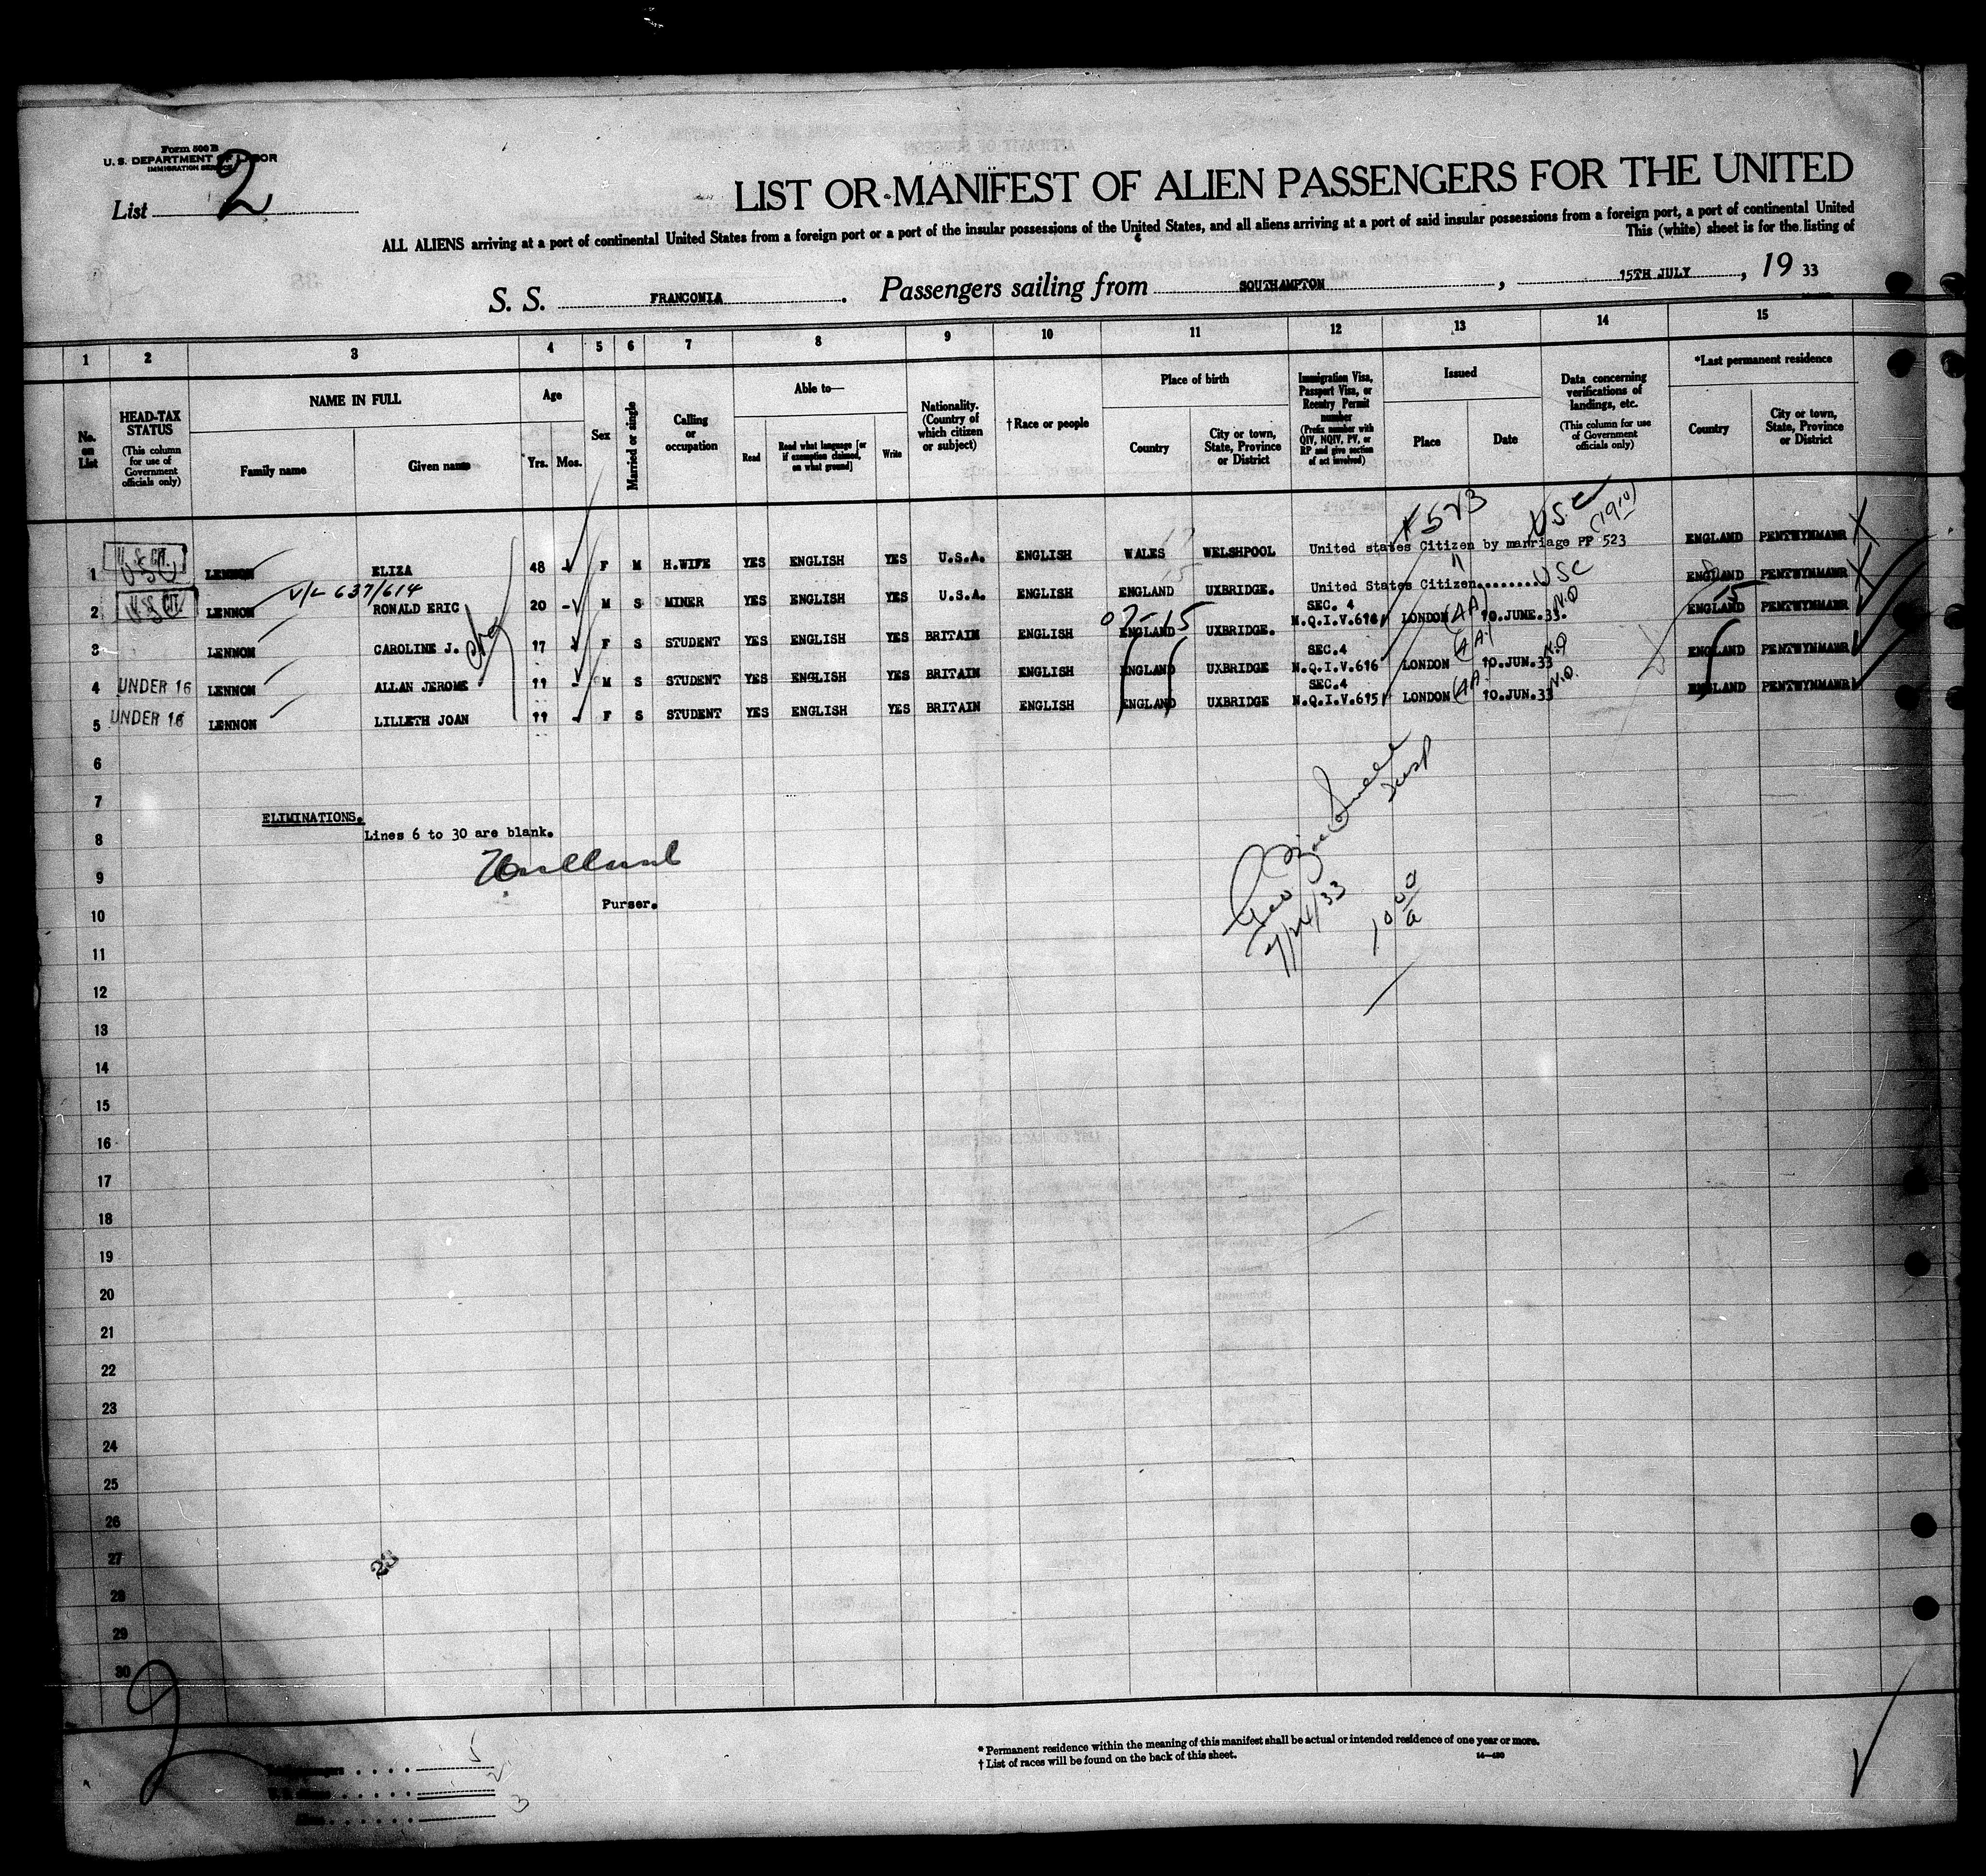 Form 500 B
U. S. DEPARTMENT OF LABOR
IMMIGRATION SERVICE
List 2
LIST OR MANIFEST OF ALIEN PASSENGERS FOR THE UNITED
ALL ALIENS arriving at a port of continental United States from a foreign port or a port of the insular possessions of the United States, and all aliens arriving at a port of said insular possessions from a foreign port, a port of continental United
This (white) sheet is for the listing of
S. S. FRANCONIA . Passengers sailing from SOUTHAMPTON , 15TH JULY , 19 33
1 2 3 4 5 6 7 8 9 10 11 12 13 14 15
No. on List
HEAD-TAX STATUS (This column for use of Government officials only)
NAME IN FULL
Family name Given name
Age
Yrs. Mos.
Sex
Married or single
Calling or occupation
Able to—
Read Read what language [or if exemption claimed, on what ground] Write
Nationality. (Country of which citizen or subject)
†Race or people
Place of birth
Country City or town, State, Province or District
Immigration Visa, Passport Visa, or Reentry Permit number (Prefix number with QIV, NQIV, PV, or RP and give section of act involved)
Issued
Place Date
Data concerning verifications of landings, etc. (This column for use of Government officials only)
*Last permanent residence
Country City or town, State, Province or District
523 USC (1910)
1 U. S. CIT. USC LENNON ELIZA 48 F M H.WIFE YES ENGLISH YES U.S.A. ENGLISH WALES WELSHPOOL United states Citizen by marriage PP 523 ENGLAND PENTWYNMAWR
V/L 637/614
2 U. S. CIT. USC LENNON RONALD ERIC 20 - M S MINER YES ENGLISH YES U.S.A. ENGLISH ENGLAND UXBRIDGE. United States Citizen........ USC ENGLAND PENTWYNMAWR
07-15
3 LENNON CAROLINE J. 17 F S STUDENT YES ENGLISH YES BRITAIN ENGLISH ENGLAND UXBRIDGE. SEC. 4 N.Q.I.V.614 LONDON (AA) 10.JUNE.33. N.Q ENGLAND 15 PENTWYNMAWR
4 UNDER 16 LENNON ALLAN JEROME 11 - M S STUDENT YES ENGLISH YES BRITAIN ENGLISH ENGLAND UXBRIDGE SEC.4 N.Q.I.V.616 LONDON (AA) 10.JUN.33 N.Q ENGLAND PENTWYNMAWR
5 UNDER 16 LENNON LILLETH JOAN 11 F S STUDENT YES ENGLISH YES BRITAIN ENGLISH ENGLAND UXBRIDGE SEC.4 N.Q.I.V.615 LONDON (AA) 10.JUN.33 N.Q. ENGLAND PENTWYNMAWR
6
7
ELIMINATIONS.
8 Lines 6 to 30 are blank.
9
Purser.
10
7/24/33
11
12
13
14
15
16
17
18
19
20
21
22
23
24
25
26
27
28
29
30
* Permanent residence within the meaning of this manifest shall be actual or intended residence of one year or more.
† List of races will be found on the back of this sheet. 14—480
5
2
3